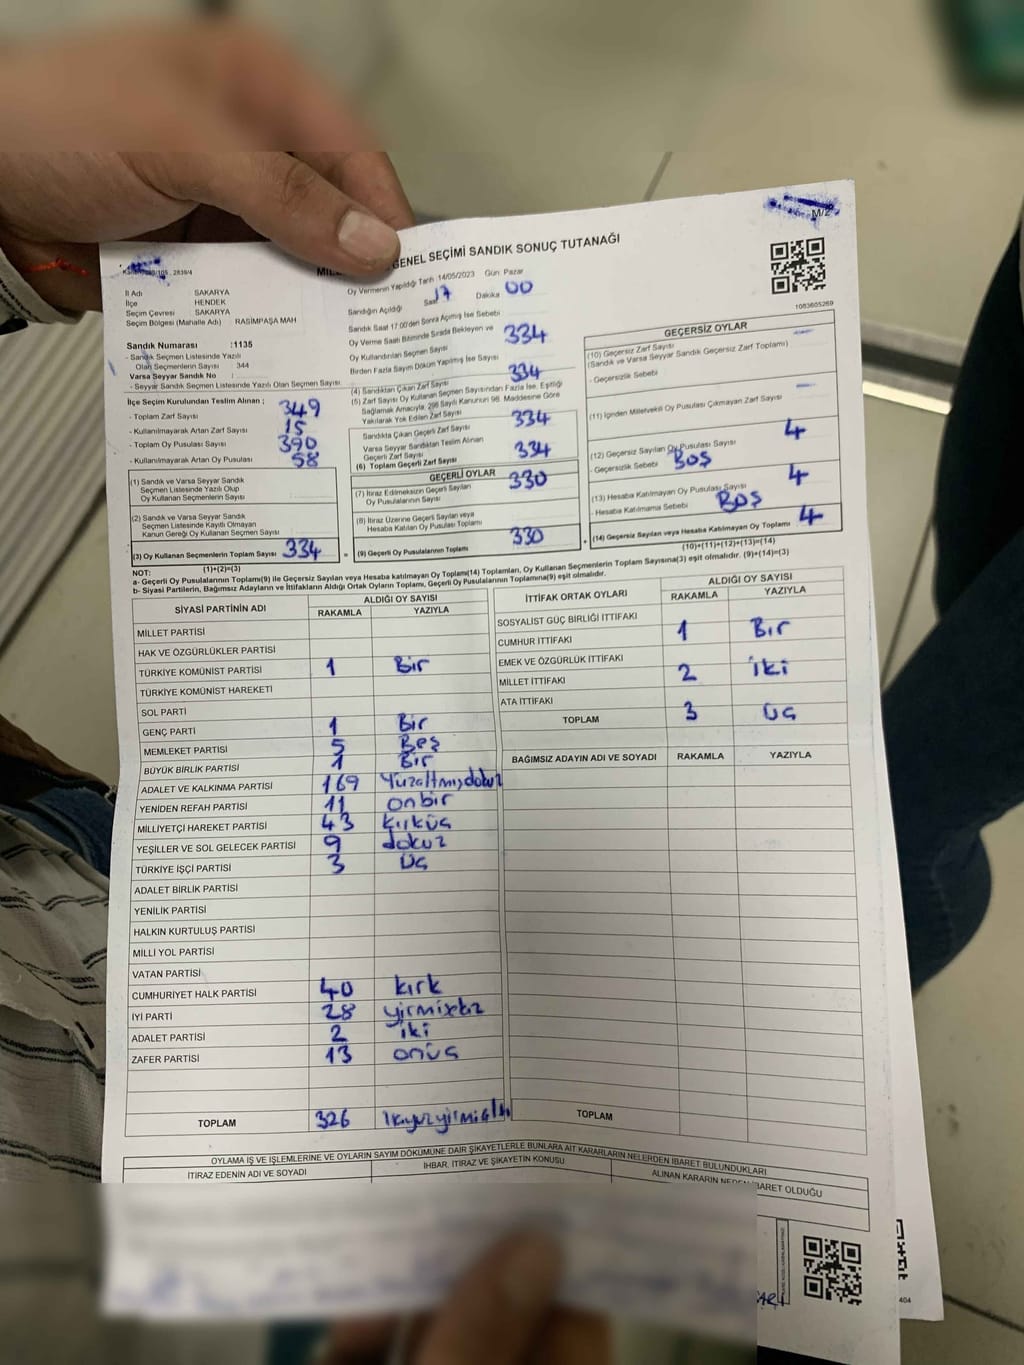 M/2
MİL GENEL SEÇİMİ SANDIK SONUÇ TUTANAĞI
1083605269
İl Adı SAKARYA
İlçe HENDEK
Seçim Çevresi SAKARYA
Seçim Bölgesi (Mahalle Adı) RASİMPAŞA MAH
Sandık Numarası :1135
- Sandık Seçmen Listesinde Yazılı
Olan Seçmenlerin Sayısı 344
Varsa Seyyar Sandık No :
- Seyyar Sandık Seçmen Listesinde Yazılı Olan Seçmen Sayısı
İlçe Seçim Kurulundan Teslim Alınan ;
- Toplam Zarf Sayısı 349
- Kullanılmayarak Artan Zarf Sayısı 15
- Toplam Oy Pusulası Sayısı 390
- Kullanılmayarak Artan Oy Pusulası 58
(1) Sandık ve Varsa Seyyar Sandık
Seçmen Listesinde Yazılı Olup
Oy Kullanan Seçmenlerin Sayısı
(2) Sandık ve Varsa Seyyar Sandık
Seçmen Listesinde Kayıtlı Olmayan
Kanun Gereği Oy Kullanan Seçmen Sayısı
(3) Oy Kullanan Seçmenlerin Toplam Sayısı 334
(1)+(2)=(3)
Oy Vermenin Yapıldığı Tarih :14/05/2023 Gün: Pazar
Sandığın Açıldığı Saat 17 Dakika 00
Sandık Saat 17:00'den Sonra Açılmış İse Sebebi
Oy Verme Saati Bitiminde Sırada Bekleyen ve
Oy Kullandırılan Seçmen Sayısı 334
Birden Fazla Sayım Döküm Yapılmış İse Sayısı
(4) Sandıktan Çıkan Zarf Sayısı 334
(5) Zarf Sayısı Oy Kullanan Seçmen Sayısından Fazla İse, Eşitliği
Sağlamak Amacıyla, 298 Sayılı Kanunun 98. Maddesine Göre
Yakılarak Yok Edilen Zarf Sayısı
Sandıkta Çıkan Geçerli Zarf Sayısı 334
Varsa Seyyar Sandıktan Teslim Alınan
Geçerli Zarf Sayısı
(6) Toplam Geçerli Zarf Sayısı 334
GEÇERLİ OYLAR
(7) İtiraz Edilmeksizin Geçerli Sayılan
Oy Pusulalarının Sayısı 330
(8) İtiraz Üzerine Geçerli Sayılan veya
Hesaba Katılan Oy Pusulası Toplamı
= (9) Geçerli Oy Pusulalarının Toplamı 330
GEÇERSİZ OYLAR
(10) Geçersiz Zarf Sayısı
(Sandık ve Varsa Seyyar Sandık Geçersiz Zarf Toplamı)
- Geçersizlik Sebebi
(11) İçinden Milletvekili Oy Pusulası Çıkmayan Zarf Sayısı
(12) Geçersiz Sayılan Oy Pusulası Sayısı 4
- Geçersizlik Sebebi BOŞ
(13) Hesaba Katılmayan Oy Pusulası Sayısı 4
- Hesaba Katılmama Sebebi BOŞ
+ (14) Geçersiz Sayılan veya Hesaba Katılmayan Oy Toplamı 4
(10)+(11)+(12)+(13)=(14)
NOT:
a- Geçerli Oy Pusulalarının Toplamı(9) ile Geçersiz Sayılan veya Hesaba katılmayan Oy Toplamı(14) Toplamları, Oy Kullanan Seçmenlerin Toplam Sayısına(3) eşit olmalıdır. (9)+(14)=(3)
b- Siyasi Partilerin, Bağımsız Adayların ve İttifakların Aldığı Ortak Oyların Toplamı, Geçerli Oy Pusulalarının Toplamına(9) eşit olmalıdır.
SİYASİ PARTİNİN ADI ALDIĞI OY SAYISI
RAKAMLA YAZIYLA
MİLLET PARTİSİ
HAK VE ÖZGÜRLÜKLER PARTİSİ
TÜRKİYE KOMÜNİST PARTİSİ 1 Bir
TÜRKİYE KOMÜNİST HAREKETİ
SOL PARTİ
GENÇ PARTİ 1 Bir
MEMLEKET PARTİSİ 5 Beş
BÜYÜK BİRLİK PARTİSİ 1 Bir
ADALET VE KALKINMA PARTİSİ 169 Yüzaltmışdokuz
YENİDEN REFAH PARTİSİ 11 onbir
MİLLİYETÇİ HAREKET PARTİSİ 43 kırküç
YEŞİLLER VE SOL GELECEK PARTİSİ 9 dokuz
TÜRKİYE İŞÇİ PARTİSİ 3 üç
ADALET BİRLİK PARTİSİ
YENİLİK PARTİSİ
HALKIN KURTULUŞ PARTİSİ
MİLLİ YOL PARTİSİ
VATAN PARTİSİ
CUMHURİYET HALK PARTİSİ 40 kırk
İYİ PARTİ 28
ADALET PARTİSİ 2 iki
ZAFER PARTİSİ 13 onüç
TOPLAM 326
İTTİFAK ORTAK OYLARI ALDIĞI OY SAYISI
RAKAMLA YAZIYLA
SOSYALİST GÜÇ BİRLİĞİ İTTİFAKI
CUMHUR İTTİFAKI 1 Bir
EMEK VE ÖZGÜRLÜK İTTİFAKI
MİLLET İTTİFAKI 2 iki
ATA İTTİFAKI
TOPLAM 3 üç
BAĞIMSIZ ADAYIN ADI VE SOYADI RAKAMLA YAZIYLA
TOPLAM
OYLAMA İŞ VE İŞLEMLERİNE VE OYLARIN SAYIM DÖKÜMÜNE DAİR ŞİKAYETLERLE BUNLARA AİT KARARLARIN NELERDEN İBARET BULUNDUKLARI
İTİRAZ EDENİN ADI VE SOYADI İHBAR, İTİRAZ VE ŞİKAYETİN KONUSU ALINAN KARARIN NEDEN İBARET OLDUĞU
404